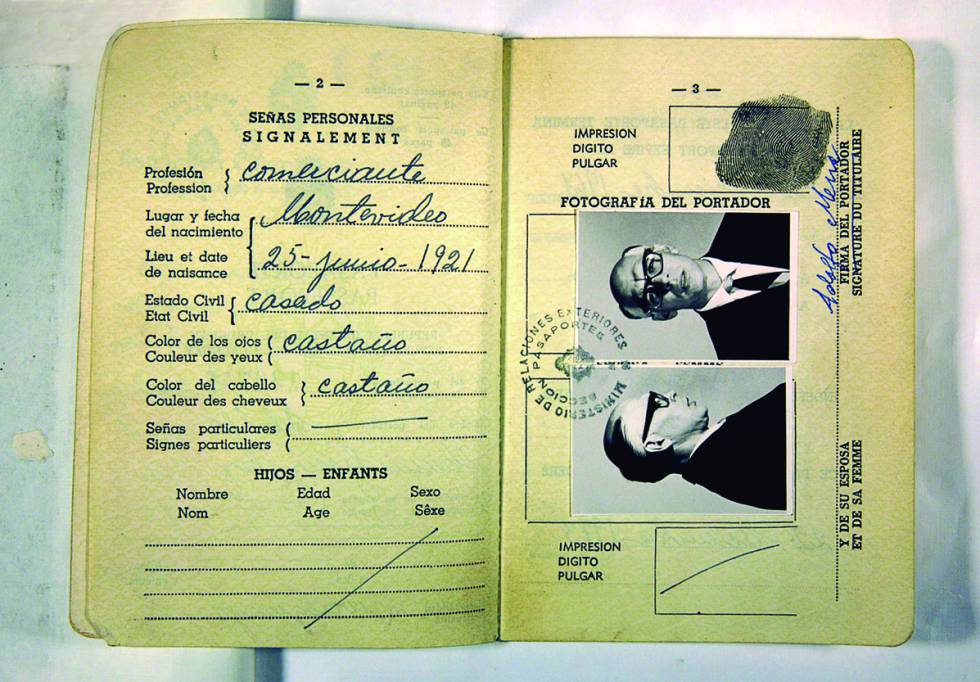 — 2 —
SEÑAS PERSONALES
SIGNALEMENT
Profesión
Profession
comerciante
Lugar y fecha
del nacimiento
Montevideo
Lieu et date
de naisance
25-junio-1921
Estado Civil
Etat Civil
casado
Color de los ojos
Couleur des yeux
castaño
Color del cabello
Couleur des cheveux
castaño
Señas particulares
Signes particuliers
HIJOS — ENFANTS
Nombre Edad Sexo
Nom Age Sêxe
— 3 —
IMPRESION
DIGITO
PULGAR
FOTOGRAFíA DEL PORTADOR
MINISTERIO DE RELACIONES EXTERIORES
SECCION PASAPORTES
Adolfo Mena
FIRMA DEL PORTADOR
SIGNATURE DU TITULAIRE
Y DE SU ESPOSA
ET DE SA FEMME
IMPRESION
DIGITO
PULGAR